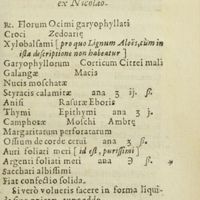 ex Nicolao.
℞. Florum Ocimi garyophyllati
Croci Zedoariæ
Xylobalsami [pro quo Lignum Aloës, cùm in
ista descriptione non habeatur]
Garyophyllorum Corticum Citrei mali
Galangæ Macis
Nucis moschatæ
Styracis calamitæ ana ʒ ij. ß.
Anisi Rasuræ Eboris
Thymi Epithymi ana ʒ j.
Camphoræ Moschi Ambræ
Margaritarum perforatarum
Ossium de corde cerui ana ʒ ß.
Auri foliati meri [id est, purissimi]
Argenti foliati meri ana ℈ ß.
Sacchari albissimi
Fiat confectio solida.
Si verò volueris facere in forma liqui-